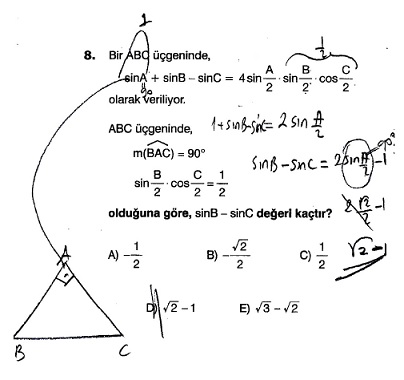 1
1/2
8. Bir ABC üçgeninde,
sinA + sinB – sinC = 4 sin A/2 · sin B/2 · cos C/2
90°
olarak veriliyor.
ABC üçgeninde,
1 + sinB - sinC = 2 sin A/2
m(BAC) = 90°
sinB – sinC = 2 sin A/2 - 1
90°
sin B/2 · cos C/2 = 1/2
olduğuna göre, sinB – sinC değeri kaçtır?
2 √2/2 - 1
A) –1/2 B) –√2/2 C) 1/2
√2 - 1
D) √2 – 1 E) √3 – √2
A
B C